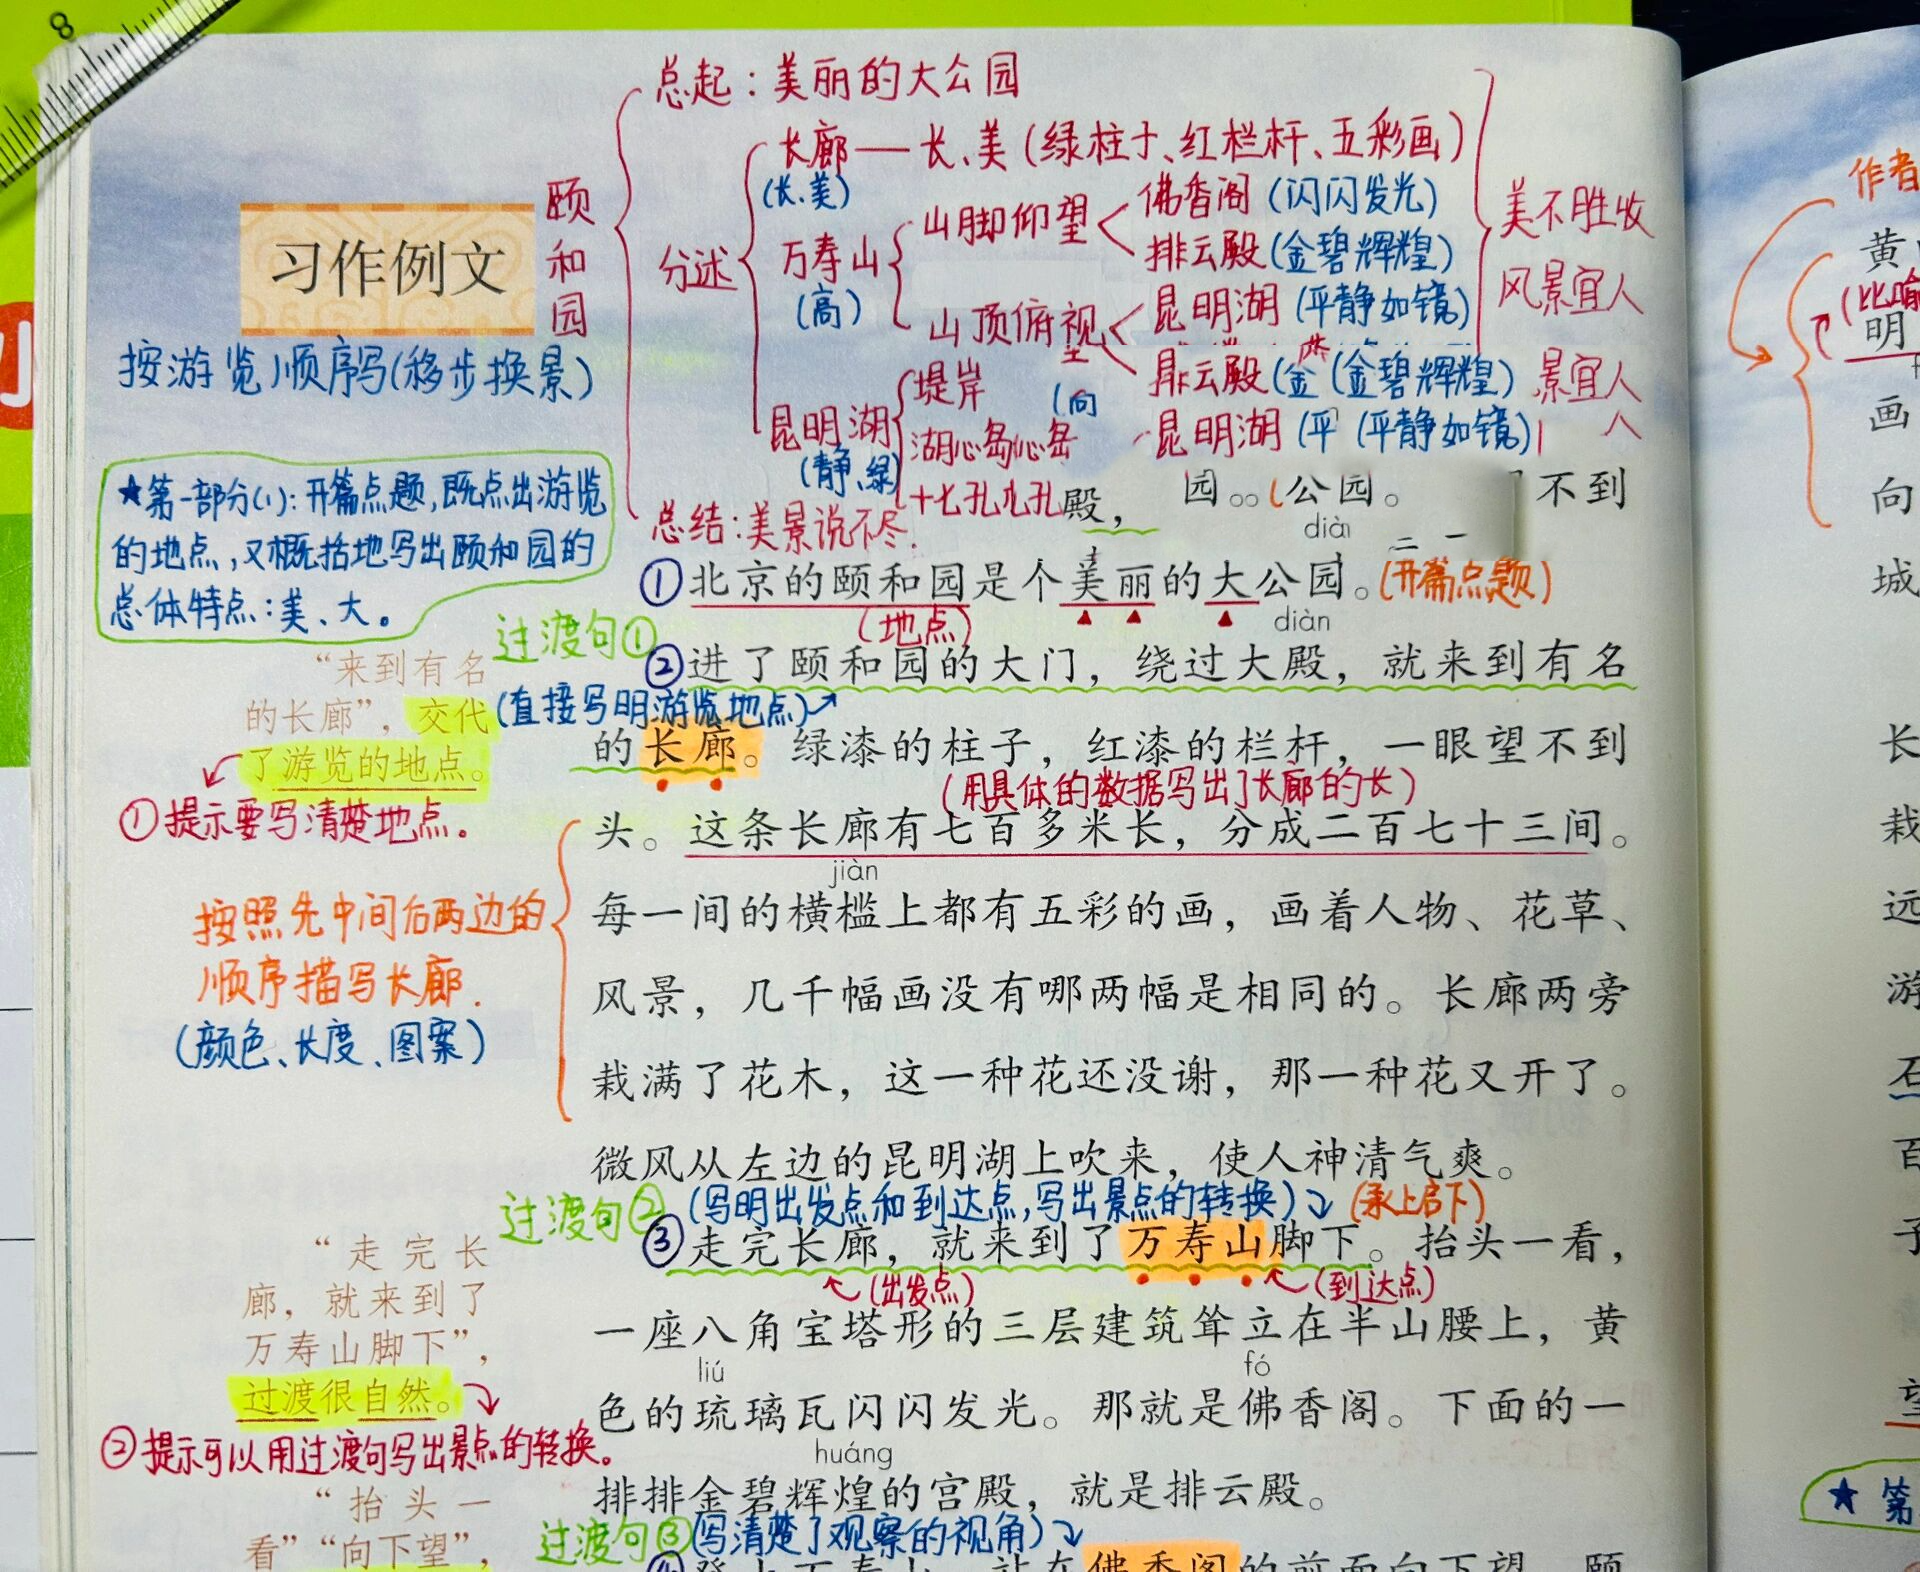 8
总起：美丽的大公园
长廊——长、美（绿柱子、红栏杆、五彩画）
(长、美)
颐和园
分述
万寿山
(高)
山脚仰望
佛香阁（闪闪发光）
排云殿（金碧辉煌）
山顶俯视
昆明湖（平静如镜）
美不胜收
风景宜人
习作例文
按游览顺序写(移步换景)
排云殿(金（金碧辉煌）
景宜人
堤岸
(向
昆明湖
(静、绿)
湖心岛心岛
昆明湖（平（平静如镜）
人
十七孔九孔
殿，
园。。
公园。
不到
总结：美景说不尽.
二一
★第一部分(1)：开篇点题，既点出游览
的地点，又概括地写出颐和园的
总体特点：美、大。
①北京的颐和园是个美丽的大公园。(开篇点题)
(地点)
diàn
过渡句①
②进了颐和园的大门，绕过大殿，就来到有名
“来到有名
的长廊”，交代
了游览的地点。
(直接写明游览地点)
的长廊。绿漆的柱子，红漆的栏杆，一眼望不到
①提示要写清楚地点。
(用具体的数据写出了长廊的长)
头。这条长廊有七百多米长，分成二百七十三间。
jiàn
每一间的横槛上都有五彩的画，画着人物、花草、
按照先中间后两边的
顺序描写长廊.
(颜色、长度、图案)
风景，几千幅画没有哪两幅是相同的。长廊两旁
栽满了花木，这一种花还没谢，那一种花又开了。
微风从左边的昆明湖上吹来，使人神清气爽。
过渡句②
(写明出发点和到达点,写出景点的转换)
(承上启下)
③走完长廊，就来到了万寿山脚下。抬头一看，
(出发点)
(到达点)
“走完长
廊，就来到了
万寿山脚下”，
过渡很自然。
一座八角宝塔形的三层建筑耸立在半山腰上，黄
liú
fó
色的琉璃瓦闪闪发光。那就是佛香阁。下面的一
②提示可以用过渡句写出景点的转换。
huáng
排排金碧辉煌的宫殿，就是排云殿。
“抬头一
看”“向下望”，
过渡句③
(写清楚了观察的视角)
④登上万寿山，站在佛香阁的前面向下望，颐
作者
黄
(比喻
明
画
向
城
长
栽
远
游
石
百
子
望
★第